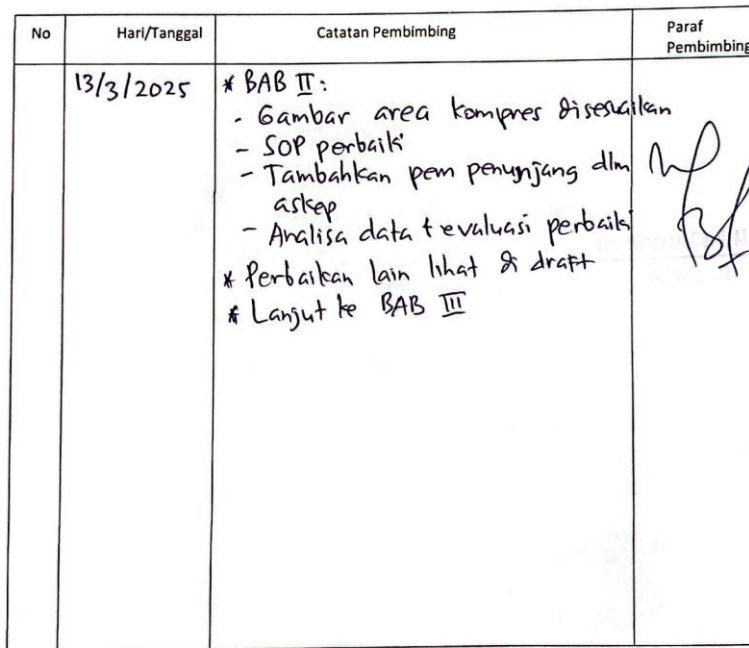 No Hari/Tanggal Catatan Pembimbing Paraf Pembimbing
13/3/2025 * BAB II:
- Gambar area kompres disesuaikan
- SOP perbaiki
- Tambahkan pem penunjang dlm
askep
- Analisa data + evaluasi perbaiki
* Perbaikan lain lihat di draft
* Lanjut ke BAB III